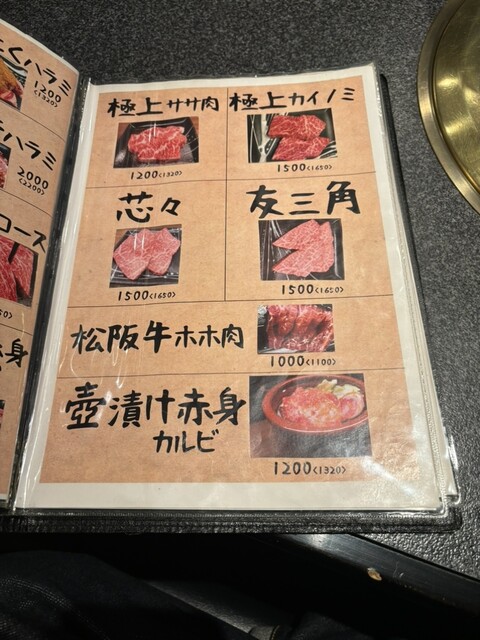 くハラミ
1200
<1320>
ハラミ
2000
<2200>
ロース
身
極上ササ肉
1200<1320>
極上カイノミ
1500<1650>
芯々
1500<1650>
友三角
1500<1650>
松阪牛ホホ肉
1000<1100>
壺漬け赤身
カルビ
1200<1320>